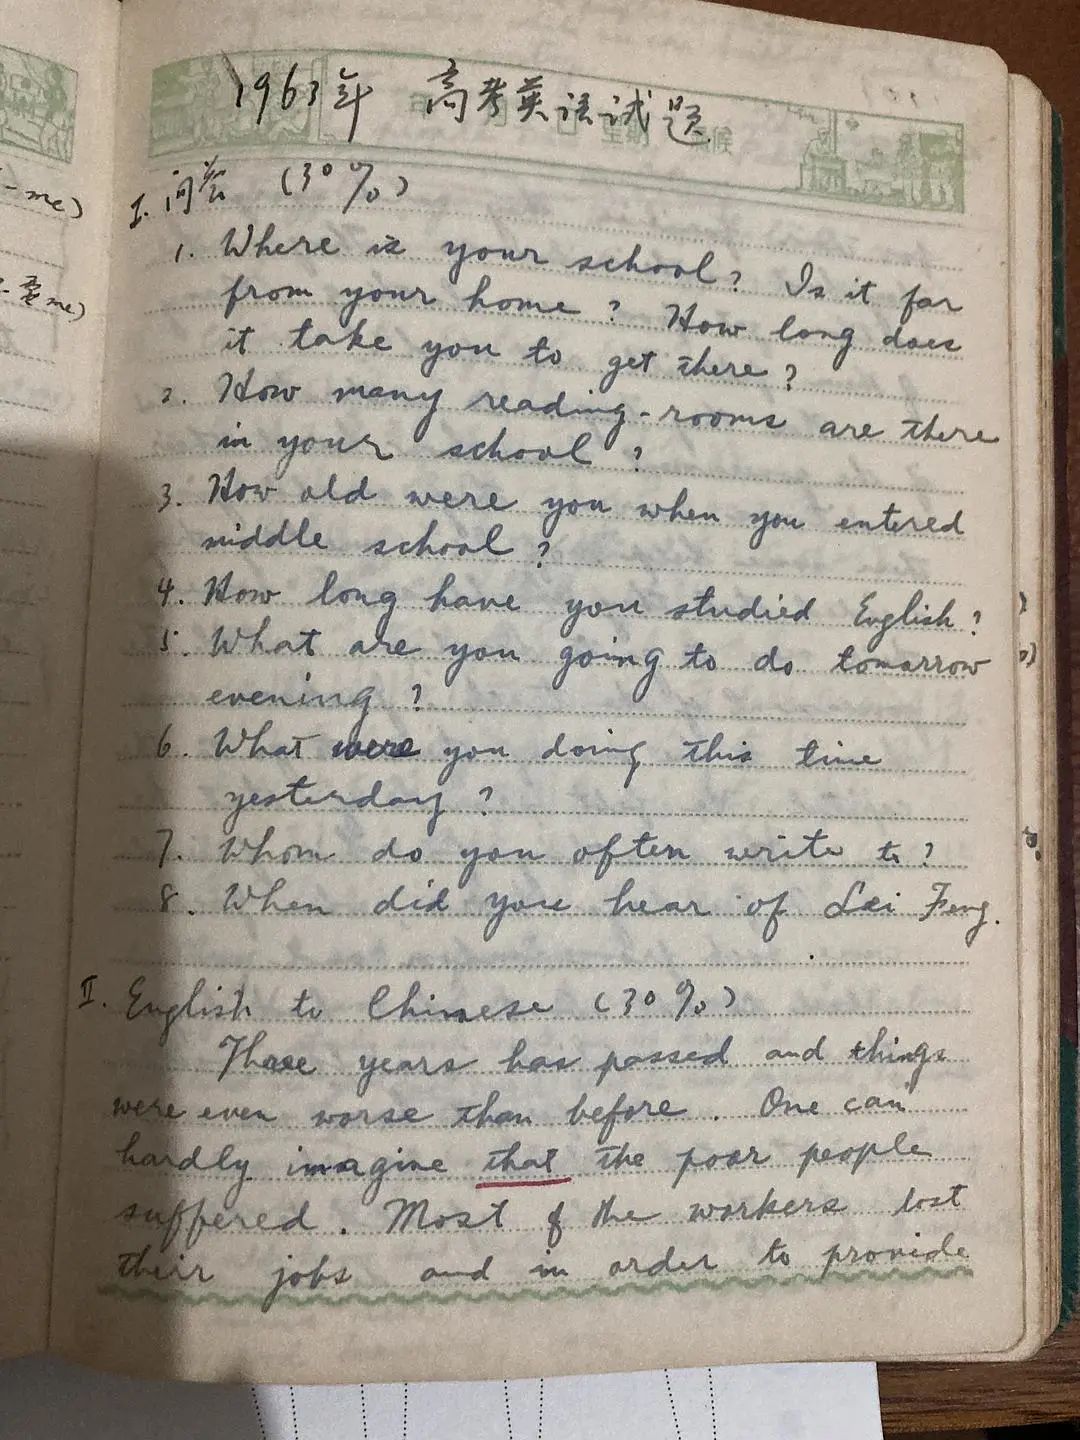 - me)
- 季 me)
1963年 高考英语试题
I. 问答 (30%)
1. Where is your school? Is it far
from your home? How long does
it take you to get there?
2. How many reading-rooms are there
in your school?
3. How old were you when you entered
middle school?
4. How long have you studied English?
5. What are you going to do tomorrow
evening?
6. What were you doing this time
yesterday?
7. Whom do you often write to?
8. When did you hear of Lei Feng.
II. English to Chinese (30%)
Three years has passed and things
were even worse than before. One can
hardly imagine that the poor people
suffered. Most of the workers lost
their jobs and in order to provide